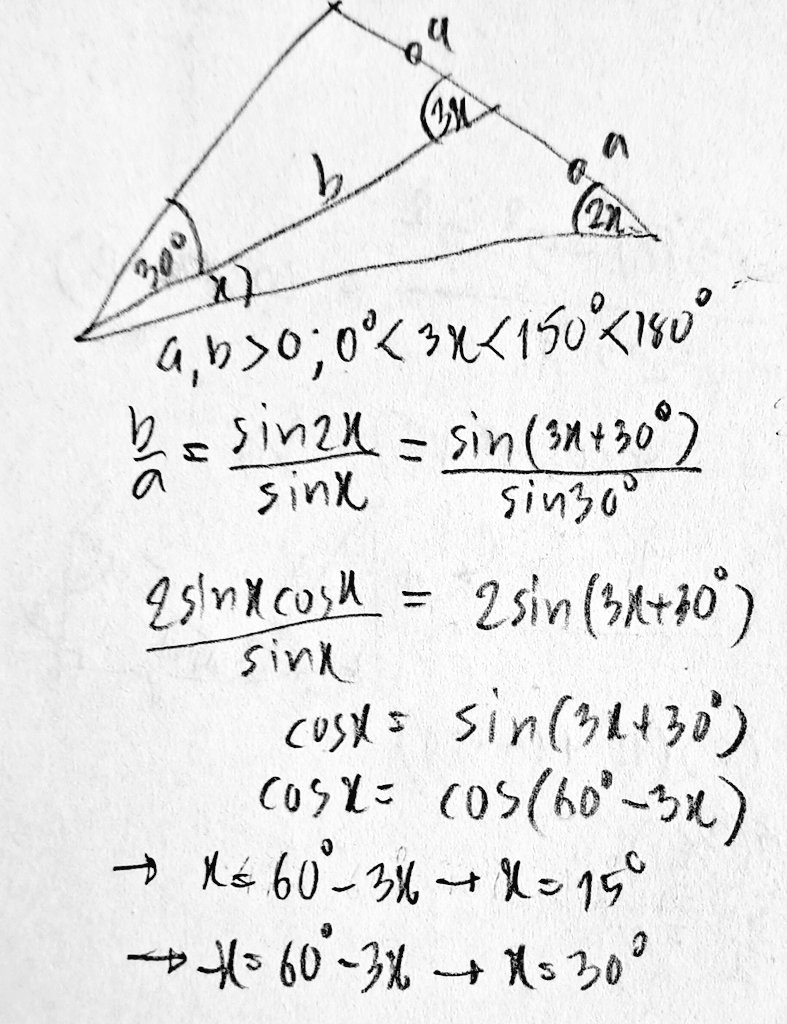 a
3x
a
b
2x
30°
x
a, b > 0; 0° < 3x < 150° < 180°
b/a = sin2x/sinx = sin(3x+30°)/sin30°
2sinxcosx/sinx = 2sin(3x+30°)
cosx = sin(3x+30°)
cosx = cos(60°-3x)
→ x = 60°-3x → x = 15°
→ -x = 60°-3x → x = 30°